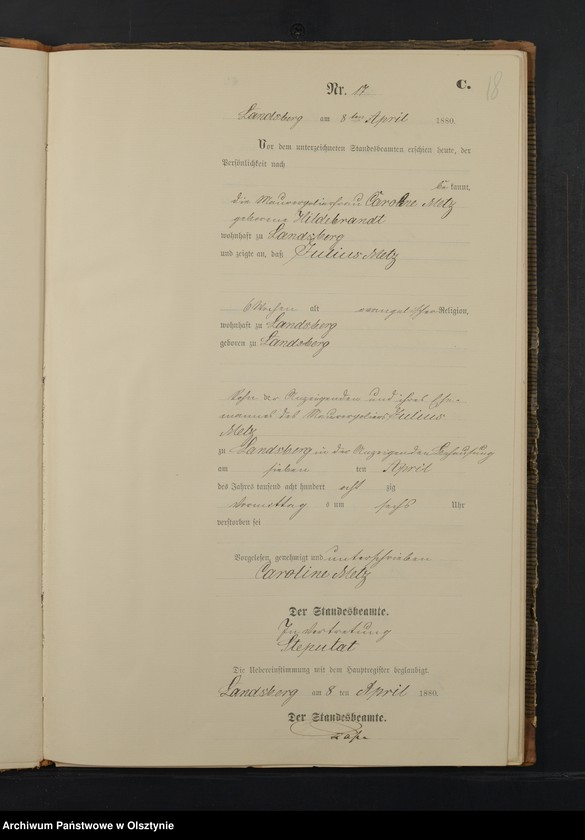 Nr. 17
C.
18
Landsberg am 8ten April 1880.
Vor dem unterzeichneten Standesbeamten erschien heute, der
Persönlichkeit nach
be kannt,
die Maurergesellenfrau Caroline Metz
geborene Hildebrandt
wohnhaft zu Landsberg
und zeigte an, daß Julius Metz
6 Wochen alt evangelischer Religion,
wohnhaft zu Landsberg
geboren zu Landsberg
Sohn der Anzeigenden und ihres Ehe-
mannes des Maurergesellen Julius
Metz
zu Landsberg in der Anzeigenden Behausung
am sieben ten April
des Jahres tausend acht hundert acht zig
Vormittag s um sechs Uhr
verstorben sei
Vorgelesen, genehmigt und unterschrieben
Caroline Metz
Der Standesbeamte.
In Vertretung
Steputat
Die Uebereinstimmung mit dem Hauptregister beglaubigt.
Landsberg am 8 ten April 1880.
Der Standesbeamte.
Archiwum Państwowe w Olsztynie